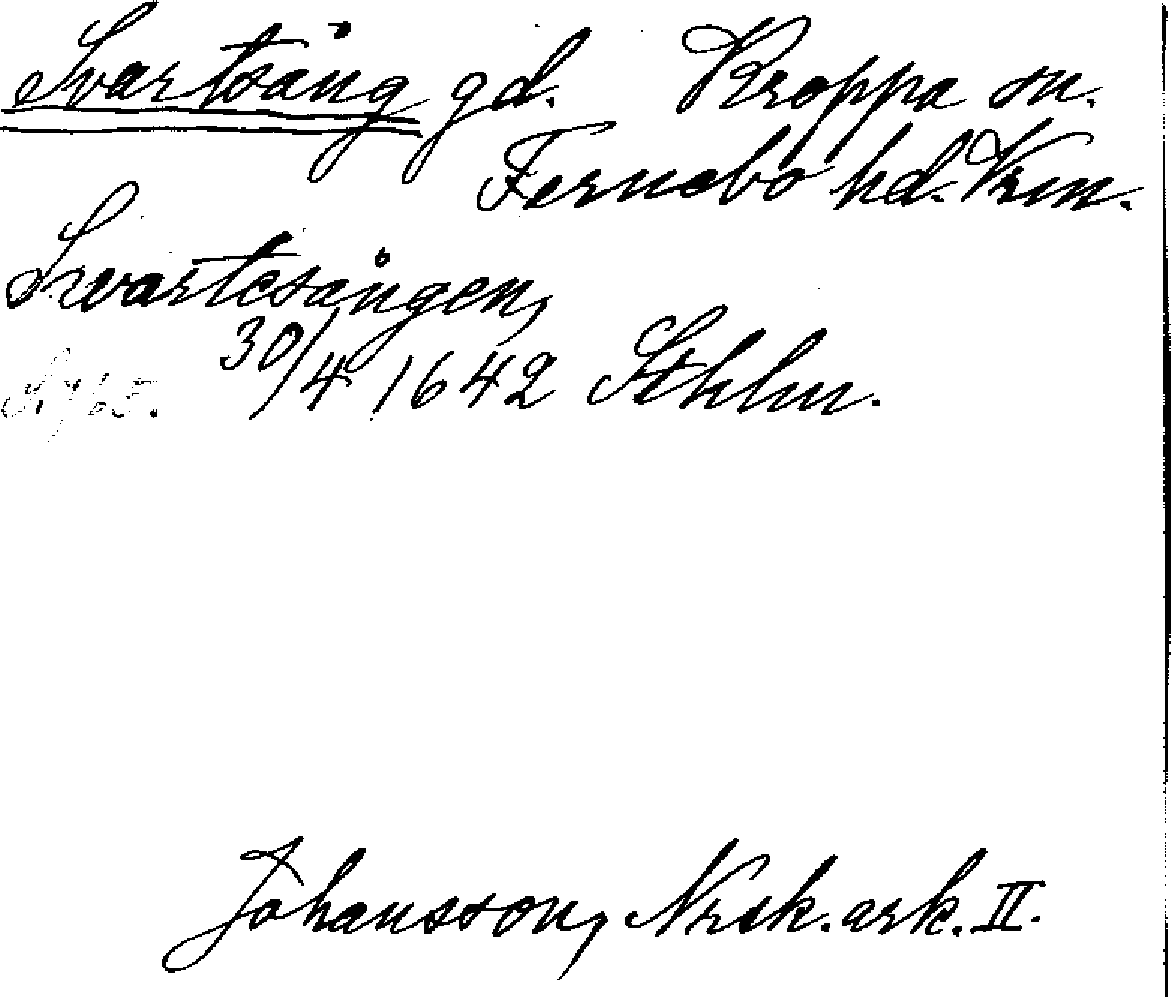 Svartsäng gd. Kroppa sn.
Fernebo hd. Vrm.
Svartesången,
30/4 1642 Sthlm.
Johansson, Nrsk. ark. II.